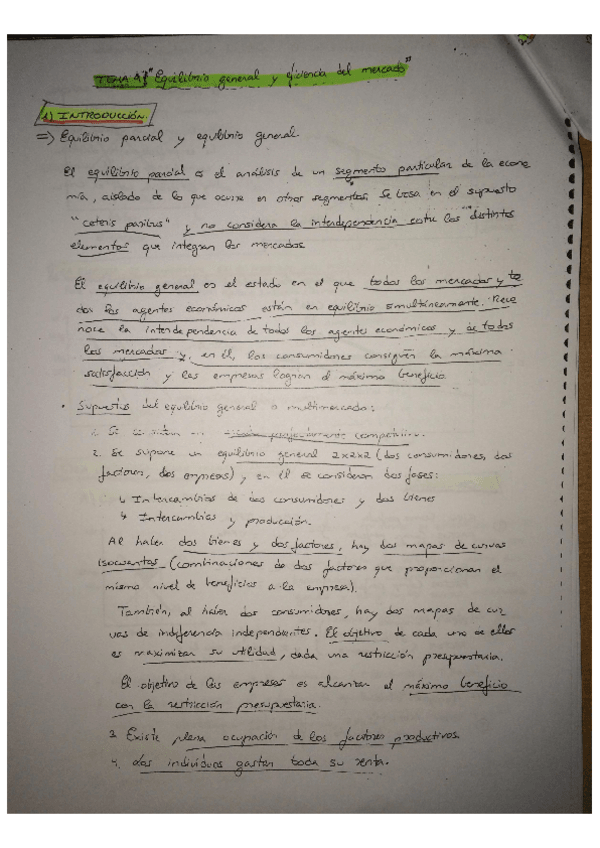 TEMA 4 "Equilibrio general y eficiencia del mercado"
1) INTRODUCCIÓN.
=> Equilibrio parcial y equilibrio general.
El equilibrio parcial es el análisis de un segmento particular de la econo
mía, aislado de lo que ocurre en otros segmentos. Se basa en el supuesto
"ceteris paribus" y no considera la interdependencia entre los distintos
elementos que integran los mercados.
El equilibrio general es el estado en el que todos los mercados y to
dos los agentes económicos están en equilibrio simultáneamente. Reco
noce la interdependencia de todos los agentes económicos y de todos
los mercados y, en él, los consumidores consiguen la máxima
satisfacción y las empresas logran el máximo beneficio.
• Supuestos del equilibrio general o multimercado:
1. Se un competitivo.
2. Se supone un equilibrio general 2x2x2 (dos consumidores, dos
factores, dos empresas) y en él se consideran dos fases:
↳ Intercambios de dos consumidores y dos bienes
↳ Intercambios y producción.
Al haber dos bienes y dos factores, hay dos mapas de curvas
isocuantas (combinaciones de dos factores que proporcionan el
mismo nivel de beneficios a la empresa).
También, al haber dos consumidores, hay dos mapas de cur
vas de indiferencia independientes. El objetivo de cada uno de ellos
es maximizar su utilidad, dada una restricción presupuestaria.
El objetivo de las empresas es alcanzar el máximo beneficio
con la restricción presupuestaria.
3. Existe plena ocupación de los factores productivos.
4. Los individuos gastan toda su renta.